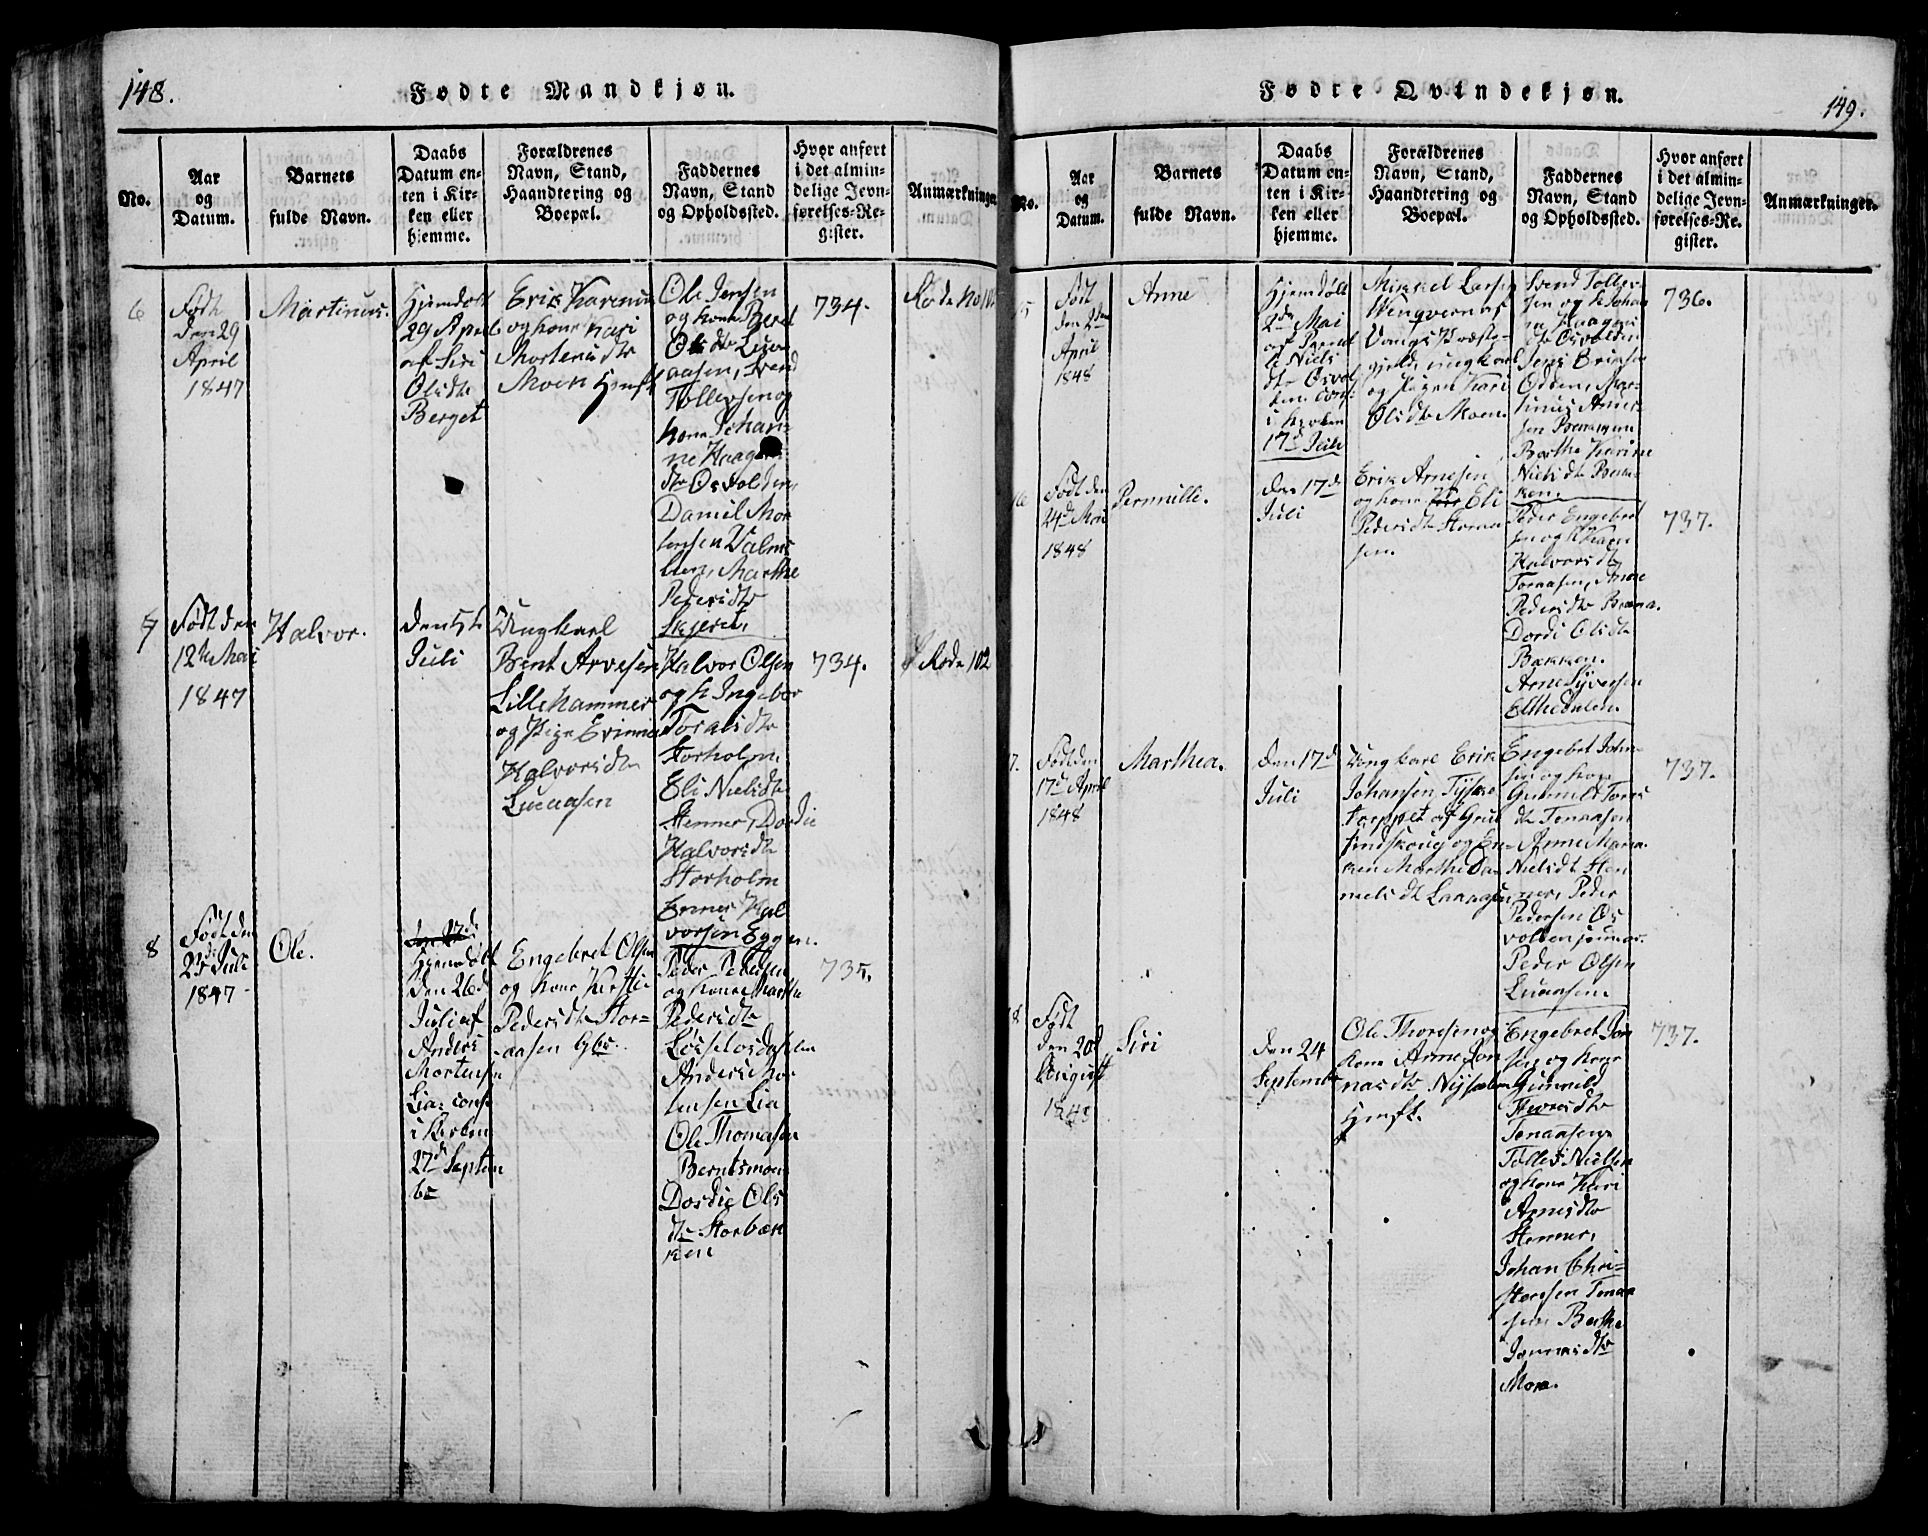 148.
Fødte Mandkjøn.
No.
Aar
og
Datum.
Barnets
fulde Navn.
Daabs
Datum en-
ten i Kir-
ken eller
hjemme.
Forældrenes
Navn, Stand,
Haandtering og
Boepæl.
Faddernes
Navn, Stand
og Opholdssted.
Hvor anført
i det almin-
delige Jevn-
førelses-Re-
gister.
Anmærkninger
6
Født
den 29
April
1847
Martinus.
Hjemdøbt
29 April
af Siri
Olsdtr
Berget
Erik
og kone Kari
Mortensdtr
Moen
Ole Jensen
og kone Beret
Olsdtr Lua-
aasen, Svend
Tollevsen og
kone Johan-
ne Haagens
dtr Osvolden,
Daniel Mor
tensen
Marthe
Pedersdtr
734.
7
Født den
12te Mai
1847
Halvor.
den 5te
Juli
Ungkarl
Bent Arvesen
Lillehammer
og Pige
Halvorsdtr
Luaasen
Halvor Olsen
og k Ingebor
Toralsdtr
Storholm
Eli Nielsdtr
Stenner, Dordie
Halvorsdtr
Storholm
Hal
vorsen Eggen.
734.
Rode 102
8
Født den
25de Juli
1847
Ole.
Hjemdøbt
den 26d
Juli af
Anders
Mortensen
Lia: conf
i Kirken
27d Septem
br
Engebret Olsen
og kone Kirsti
Pedersdtr Stor=
aasen Gbr.
Peder Pedersen
og kone Marthe
Pedersdtr
Anders Mor
tensen Lia
Ole Thomasen
Berntsmoen
Dordie Ols
dtr Storbæk
ken
735.
Fødte Qvindekjøn.
149.
No.
Aar
og
Datum.
Barnets
fulde Navn.
Daabs
Datum en-
ten i Kir-
ken eller
hjemme.
Forældrenes
Navn, Stand,
Haandtering og
Boepæl.
Faddernes
Navn, Stand
og Opholdssted.
Hvor anført
i det almin-
delige Jevn-
førelses-Re-
gister.
Anmærkninger.
5
Født
den 2den
April
1848
Anne
Hjemdøbt
2den Mai
af
Niels
dtr Osvol
den conf:
i kirken
17d Juli
Mikkel Larsen
Wengvern af
Vangs Præste-
gjeld, ungkarl
og Pigen Kari
Olsdtr Moen
Svend Tollev-
sen og k Johan
ne Haagens
dtr Osvolden
Jens Eriksen
Odden, Mar-
tinus
Berthe Karine
Nielsdtr Bræk-
ken.
736.
6
Født den
24de Mai
1848
Pernille.
den 17de
Juli
Erik Arnesen
og kone Eli
Pedersdtr
Peder Engebret
sen og k Karen
Halvorsdtr
Toraasen, Anne
Pedersdtr
Dordi Olsdtr
Bækken.
Arne Syversen
737.
7.
Født den
17de April
1848
Marthea.
den 17d
Juli
Ungkarl Erik
Johansen Tyske
torppet af Grue
findskoug og En=
ken Marthe Da-
nielsdtr
Engebret John-
sen og kone
Gunnild Tores
dtr Tonaasen
Anne Maria
Nielsdt Sten
ner, Peder
Pedersen Os
volden junior.
Peder Olsen
Luaasen.
737.
8
Født
den 20d
August
1848
Siri
den 24
Septembr
Ole Thoresen og
kone Anne Jon
nasdtr
Engebret Jon
sen og kone
Gunnild
Thoresdtr
Tonaasen
Tolles Nielsen
og kone Kari
Arnesdtr
Stenner,
Johan Chri-
stensen Tonaa
sen Berthe
Jonnasdtr
Moen.
737.